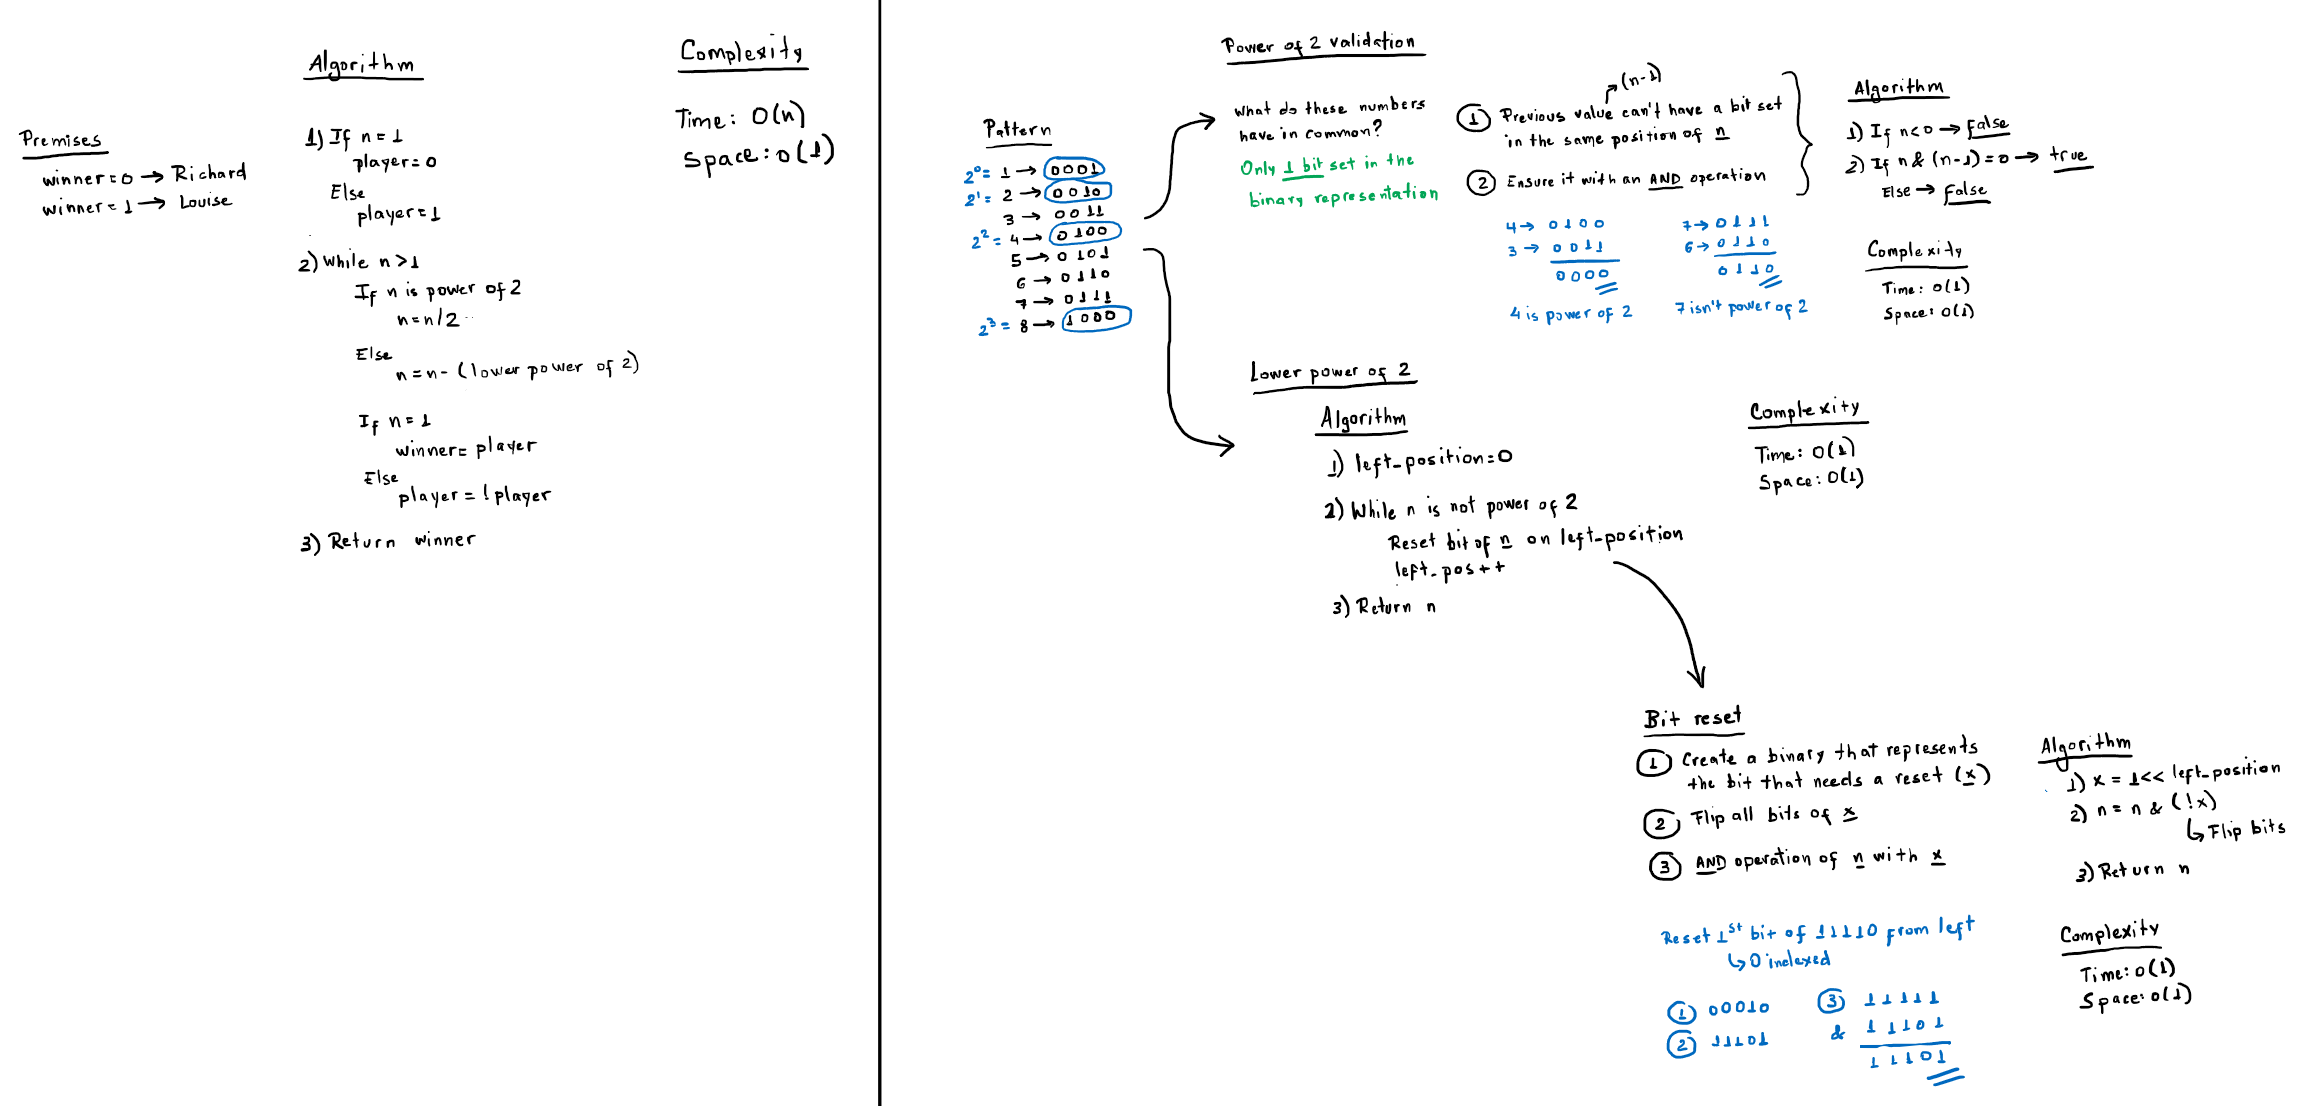 Premises
winner=0 → Richard
winner=1 → Louise
Algorithm
1) If n=1
player=0
Else
player=1
2) While n>1
If n is power of 2
n=n/2
Else
n=n-(lower power of 2)
If n=1
winner=player
Else
player=!player
3) Return winner
Complexity
Time: O(n)
Space: O(1)
Pattern
2⁰= 1 → 0001
2¹= 2 → 0010
3 → 0011
2²= 4 → 0100
5 → 0101
6 → 0110
7 → 0111
2³= 8 → 1000
Power of 2 validation
What do these numbers
have in common?
Only 1 bit set in the
binary representation
(n-1)
1 Previous value can't have a bit set
in the same position of n
2 Ensure it with an AND operation
4 → 0100
3 → 0011
0000
4 is power of 2
7 → 0111
6 → 0110
0110
7 isn't power of 2
Algorithm
1) If n<0 → False
2) If n & (n-1)=0 → true
Else → False
Complexity
Time: O(1)
Space: O(1)
Lower power of 2
Algorithm
1) left_position=0
2) While n is not power of 2
Reset bit of n on left_position
left_pos++
3) Return n
Complexity
Time: O(1)
Space: O(1)
Bit reset
1 Create a binary that represents
the bit that needs a reset (x)
2 Flip all bits of x
3 AND operation of n with x
Reset 1st bit of 11110 from left
↳ 0 indexed
1 00010
2 11101
3 11111
& 11101
11101
Algorithm
1) x = 1<< left_position
2) n = n & (!x)
↳ Flip bits
3) Return n
Complexity
Time: O(1)
Space: O(1)